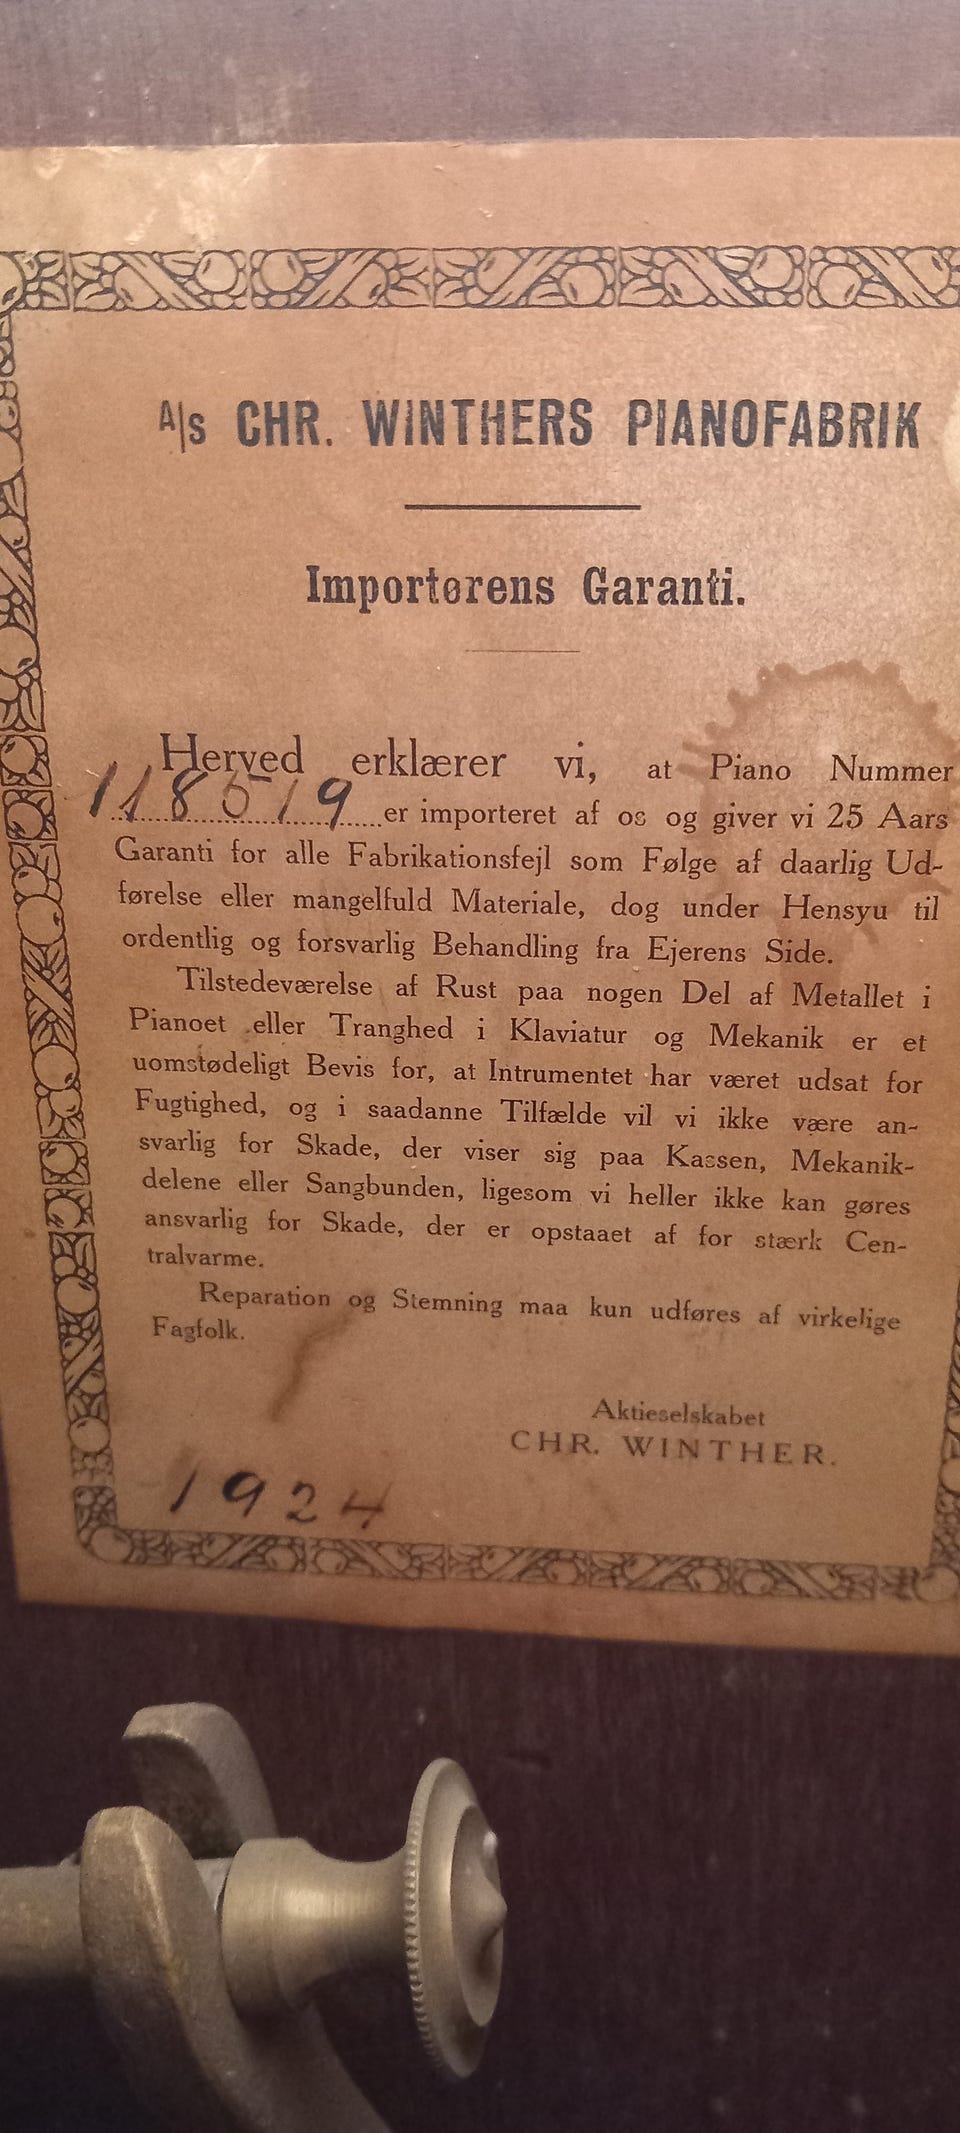 A/s CHR. WINTHERS PIANOFABRIK
Importørens Garanti.
Herved erklærer vi, at Piano Nummer
118519 er importeret af os og giver vi 25 Aars
Garanti for alle Fabrikationsfejl som Følge af daarlig Ud-
førelse eller mangelfuld Materiale, dog under Hensyu til
ordentlig og forsvarlig Behandling fra Ejerens Side.
Tilstedeværelse af Rust paa nogen Del af Metallet i
Pianoet eller Tranghed i Klaviatur og Mekanik er et
uomstødeligt Bevis for, at Intrumentet har været udsat for
Fugtighed, og i saadanne Tilfælde vil vi ikke være an-
svarlig for Skade, der viser sig paa Kassen, Mekanik-
delene eller Sangbunden, ligesom vi heller ikke kan gøres
ansvarlig for Skade, der er opstaaet af for stærk Cen-
tralvarme.
Reparation og Stemning maa kun udføres af virkelige
Fagfolk.
Aktieselskabet
CHR. WINTHER.
1924